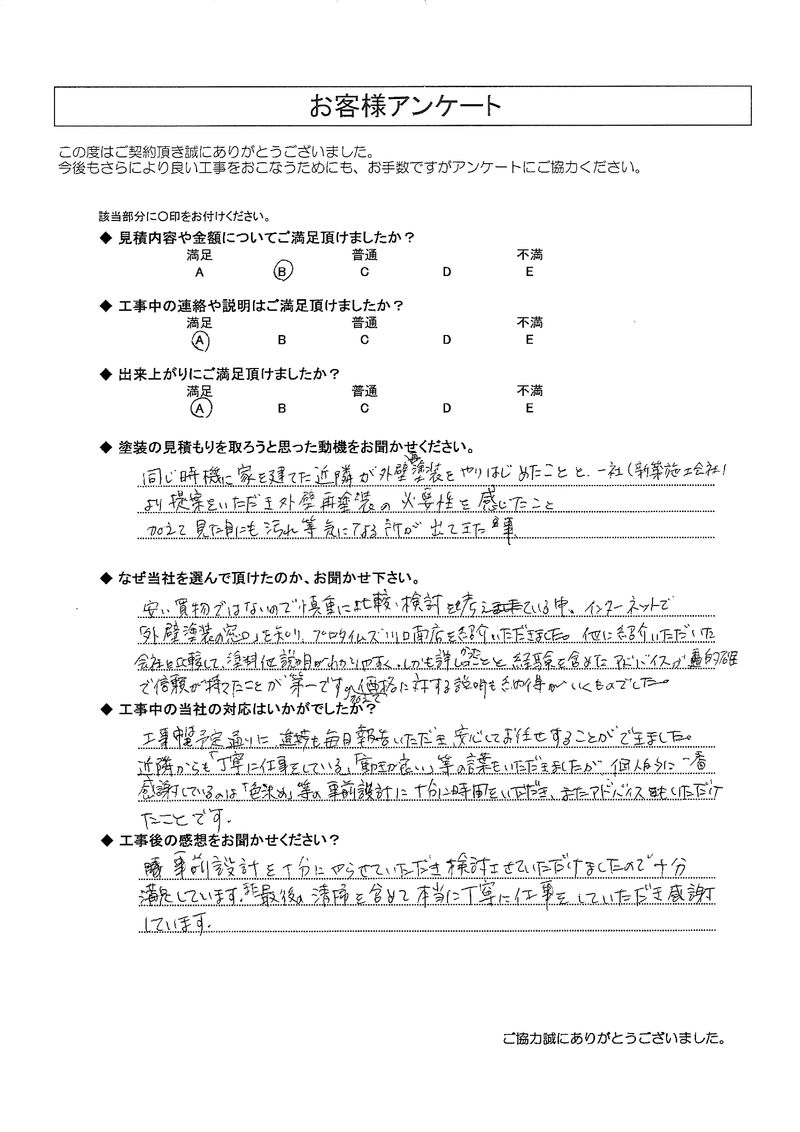 お客様アンケート
この度はご契約頂き誠にありがとうございました。
今後もさらにより良い工事をおこなうためにも、お手数ですがアンケートにご協力ください。
該当部分に〇印をお付けください。
◆ 見積内容や金額についてご満足頂けましたか？
満足 普通 不満
A B C D E
◆ 工事中の連絡や説明はご満足頂けましたか？
満足 普通 不満
A B C D E
◆ 出来上がりにご満足頂けましたか？
満足 普通 不満
A B C D E
◆ 塗装の見積もりを取ろうと思った動機をお聞かせください。
同じ時機に家を建てた近隣が外壁再塗装をやりはじめたことと、一社(新築施工会社)
より提案をいただき外壁再塗装の必要性を感じたこと
加えて見た目にも汚れ等気になる所が出てきた事
◆ なぜ当社を選んで頂けたのか、お聞かせ下さい。
安い買物ではないので慎重に比較、検討を考えている中。インターネットで
「外壁塗装の窓口」を知り、プロタイムズ川口南店を紹介いただきました。他に紹介いただいた
会社と比較して、塗料他説明がわかりやすく、しかも詳しかったことと経験を含めたアドバイスが的確
で信頼が持てたことが第一です。加えて価格に対する説明も納得がいくものでした。
◆ 工事中の当社の対応はいかがでしたか？
工事中予定通りに進捗も毎日報告いただき安心してお任せすることができました。
近隣からも「丁寧に仕事をしている」「動きが良い」等の言葉をいただきましたが個人的に一番
感謝しているのは「色決め」等の事前設計に十分に時間をいただき、またアドバイスをいただけ
たことです。
◆ 工事後の感想をお聞かせください？
事前設計を十分にやらせていただき検討させていただけましたので十分
満足しています。最後の清掃を含めて本当に丁寧に仕事をしていただき感謝
しています。
ご協力誠にありがとうございました。